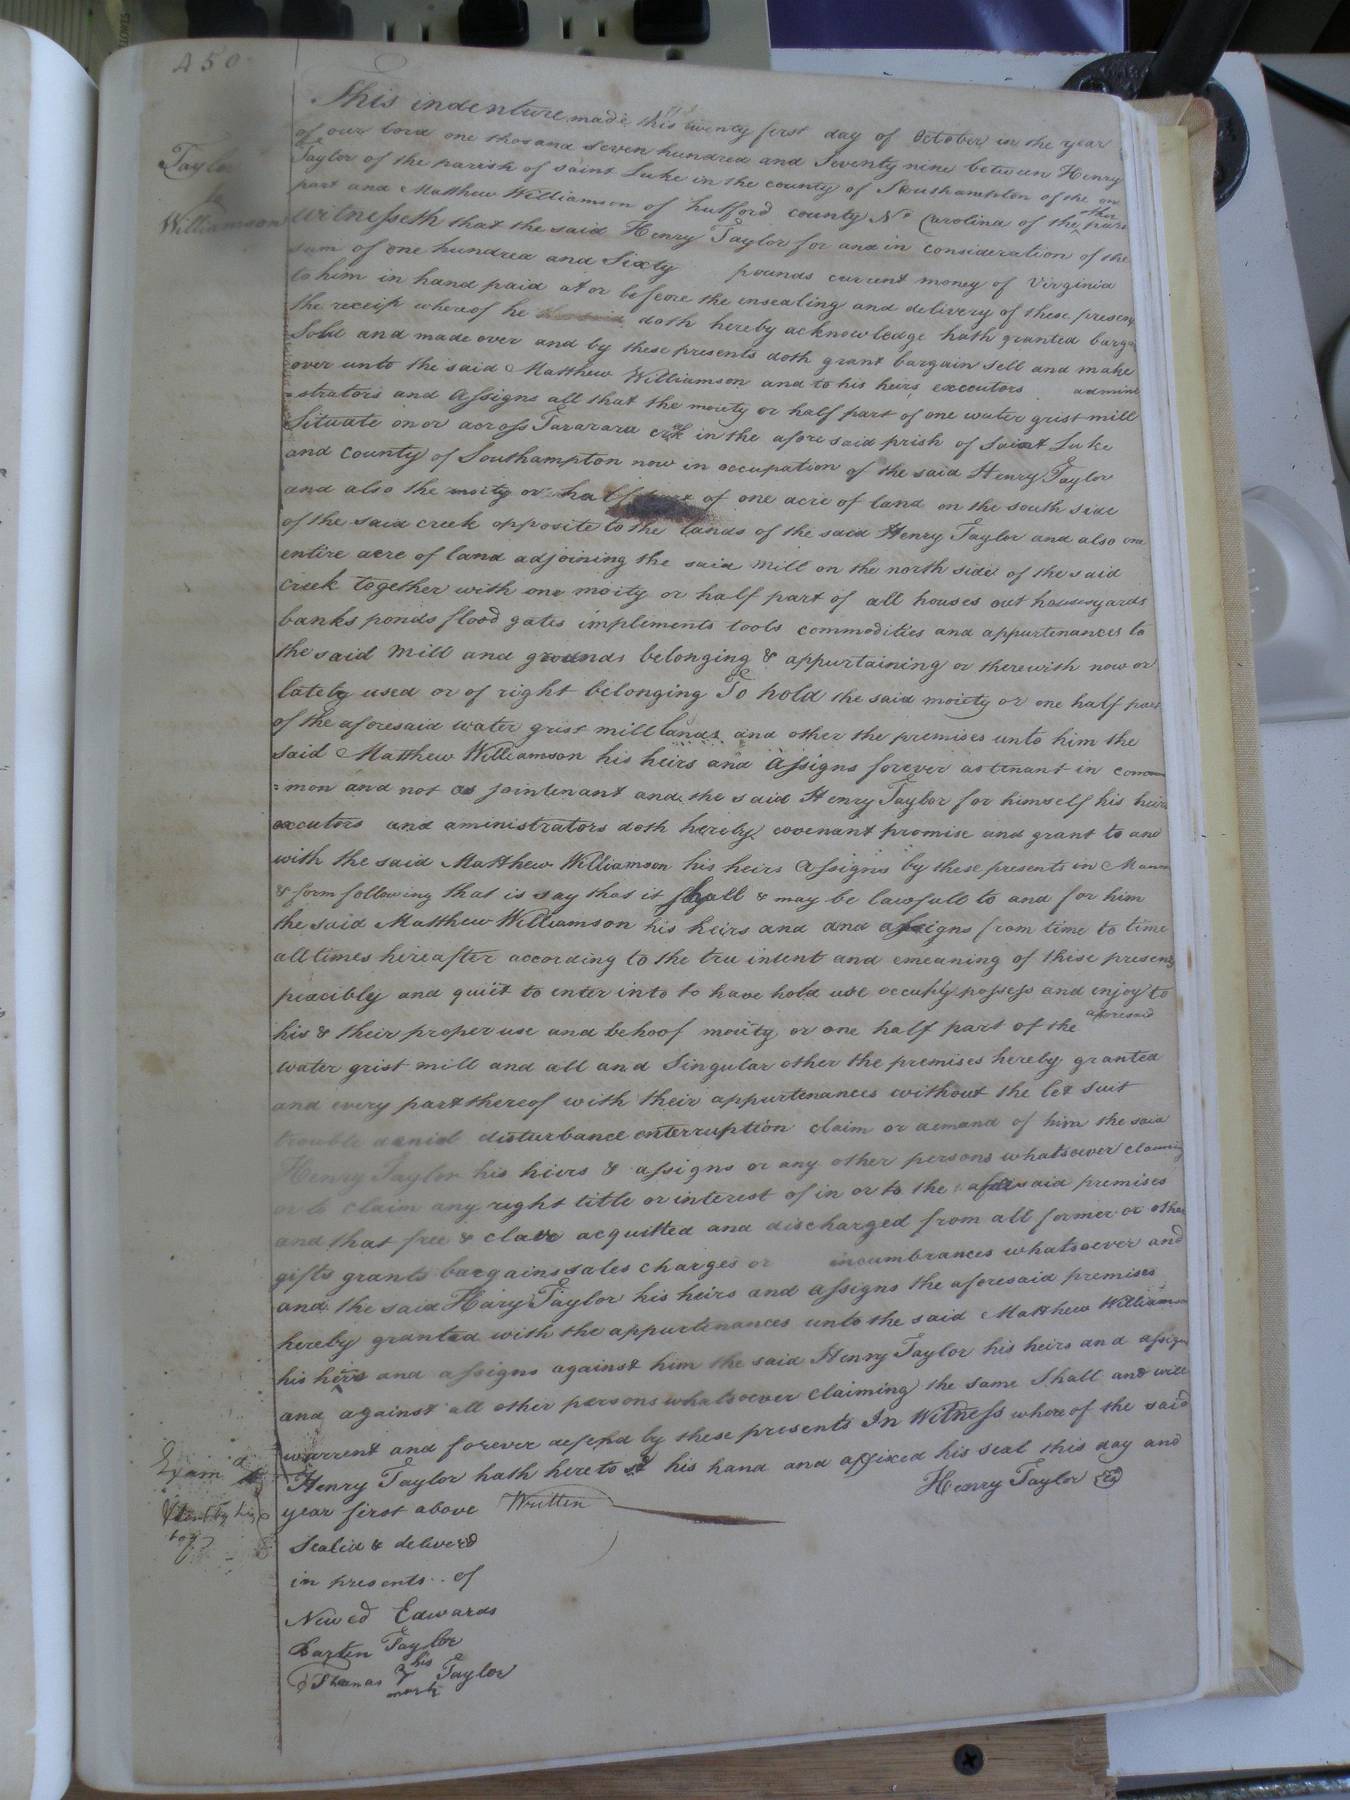 450
Taylor
to
Williamson
This indenture made this twenty first day of October in the year
of our lord one thosand seven hundred and seventy nine between Henry
Taylor of the parish of saint Luke in the county of Southampton of the one
part and Matthew Williamson of hulford county No Carolina of the other part
Witnesseth that the said Henry Taylor for and in consideration of the
sum of one hundred and Sixty pounds current money of Virginia
to him in hand paid at or before the ensealing and delivery of these presents
the receipt whereof he doth hereby acknowledge hath granted barga
Sold and made over and by these presents doth grant bargain sell and make
over unto the said Matthew Williamson and to his heirs executors admini
=strators and Assigns all that the moiety or half part of one water grist mill
Situate on or across Tararara crek in the afore said prish of Saint Luke
and county of Southampton now in occupation of the said Henry Taylor
and also the moity or half part of one acre of land on the south side
of the said creek opposite to the lands of the said Henry Taylor and also one
entire acre of land adjoining the said mill on the north side of the said
creek together with one moity or half part of all houses out houses yards
banks ponds flood gates implements tools commodities and appurtenances to
the said mill and grounds belonging & appurtaining or therewith now or
lately used or of right belonging To hold the said moiety or one half part
of the aforesaid water grist mill lands and other the premises unto him the
said Matthew Williamson his heirs and Assigns forever as tenant in com
=mon and not as jointenant and the said Henry Taylor for himself his heirs
excutors and aministrators doth hereby covenant promise and grant to and
with the said Matthew Williamson his heirs Assigns by these presents in Mann
& form following that is say that it shall & may be lawfull to and for him
the said Matthew Williamson his heirs and and assigns from time to time
all times hereafter according to the tru intent and emeaning of these presents
peacibly and quiit to enter into to have hold use occuply possess and enjoy to
his & their proper use and behoof moiety or one half part of the aforesaid
water grist mill and all and Singular other the premises hereby granted
and every part thereof with their appurtenances without the let suit
trouble denial disturbance enterruption claim or demand of him the said
Henry Taylor his heirs & assigns or any other persons whatsoever claiming
or to claim any right title or interest of in or to the aforesaid premises
and that free & clare acquitted and discharged from all former or other
gifts grants bargains sales charges or incumbrances whatsoever and
and the said Hary Taylor his heirs and assigns the aforesaid premises
hereby granted with the appurtenances unto the said Matthew Williamson
his heirs and assigns against him the said Henry Taylor his heirs and assigns
and against all other persons whatsoever claiming the same Shall and will
warrent and forever defend by these presents In Witness whereof the said
Henry Taylor hath here to set his hand and affixed his seal this day and
year first above Written
Henry Taylor
Exam d
Sealid & deliverd
in presents of
Newed Edwards
Barten Taylor
Thomas his mark Taylor